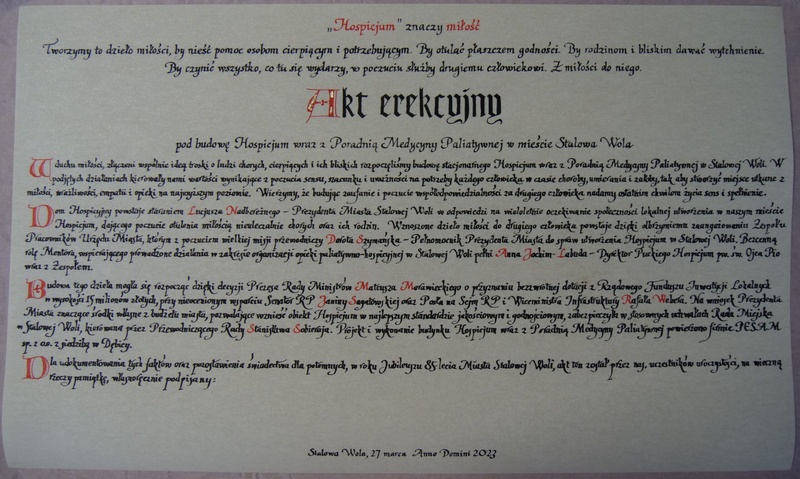 „Hospicjum" znaczy miłość
Tworzymy to dzieło miłości, by nieść pomoc osobom cierpiącym i potrzebującym. By otulać płaszczem godności. By rodzinom i bliskim dawać wytchnienie.
By czynić wszystko, co tu się wydarzy, w poczuciu służby drugiemu człowiekowi. Z miłości do niego.
Akt erekcyjny
pod budowę Hospicjum wraz z Poradnią Medycyny Paliatywnej w mieście Stalowa Wola
W duchu miłości, złączeni wspólnie ideą troski o ludzi chorych, cierpiących i ich bliskich rozpoczęliśmy budowę stacjonarnego Hospicjum wraz z Poradnią Medycyny Paliatywnej w Stalowej Woli. W
podjętych działaniach kierowały nami wartości wynikające z poczucia sensu, szacunku i uważności na potrzeby każdego człowieka w czasie choroby, umierania i żałoby, tak aby stworzyć miejsce utkane z
miłości, wrażliwości, empatii i opieki na najwyższym poziomie. Wierzymy, że budując zaufanie i poczucie współodpowiedzialności za drugiego człowieka nadamy ostatnim chwilom życia sens i spełnienie.
Dom Hospicyjny powstaje staraniem Lucjusza Nadbereżnego – Prezydenta Miasta Stalowej Woli w odpowiedzi na wieloletnie oczekiwanie społeczności lokalnej utworzenia w naszym mieście
Hospicjum, dającego poczucie otulenia miłością nieuleczalnie chorych oraz ich rodzin. Wznoszone dzieło miłości do drugiego człowieka powstaje dzięki olbrzymiemu zaangażowaniu Zespołu
Pracowników Urzędu Miasta, którym z poczuciem wielkiej misji przewodniczy Dorota Szymańska – Pełnomocnik Prezydenta Miasta do spraw utworzenia Hospicjum w Stalowej Woli. Bezcenną
rolę Mentora, wspierającego prowadzone działania w zakresie organizacji opieki paliatywno-hospicyjnej w Stalowej Woli pełni Anna Jochim-Labuda – Dyrektor Puckiego Hospicjum pw. św. Ojca Pio
wraz z Zespołem.
Budowa tego dzieła mogła się rozpocząć dzięki decyzji Prezesa Rady Ministrów Mateusza Morawieckiego o przyznaniu bezzwrotnej dotacji z Rządowego Funduszu Inwestycji Lokalnych
w wysokości 15 milionów złotych, przy nieocenionym wsparciu Senator RP Janiny Sagatowskiej oraz Posła na Sejm RP i Wiceministra Infrastruktury Rafała Webera. Na wniosek Prezydenta
Miasta znaczące środki własne z budżetu miasta, pozwalające wznieść obiekt Hospicjum w najlepszym standardzie jakościowym i godnościowym, zabezpieczyła w stosownych uchwałach Rada Miejska
w Stalowej Woli, kierowana przez Przewodniczącego Rady Stanisława Sobieraja. Projekt i wykonanie budynku Hospicjum wraz z Poradnią Medycyny Paliatywnej powierzono firmie PESAM
sp. z o.o. z siedzibą w Dębicy.
Dla udokumentowania tych faktów oraz pozostawienia świadectwa dla potomnych, w roku Jubileuszu 85-lecia Miasta Stalowej Woli, akt ten został przez nas, uczestników uroczystości, na wieczną
rzeczy pamiątkę, własnoręcznie podpisany:
Stalowa Wola, 27 marca Anno Domini 2023